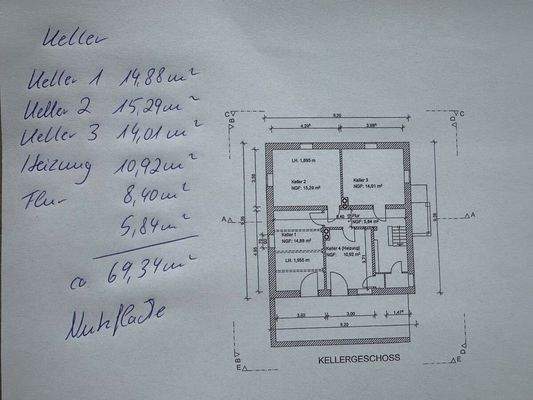 Keller
Keller 1 14,88 m²
Keller 2 15,29 m²
Keller 3 14,01 m²
Heizung 10,92 m²
Flur 8,40 m²
5,84 m²
ca 69,34 m²
Nutzfläche
C
B
C
D
9,20
4,29⁵
3,98⁵
LH. 1,895 m
Keller 2
NGF: 15,29 m²
Keller 3
NGF: 14,01 m²
A
A
Flur
8,40
NGF: 5,84 m²
Keller 1
NGF: 14,89 m²
Keller 4 (Heizung)
NGF: 10,92 m²
LH. 1,955 m
3,00
1,41⁵
9,20
KELLERGESCHOSS
B
E
D
E